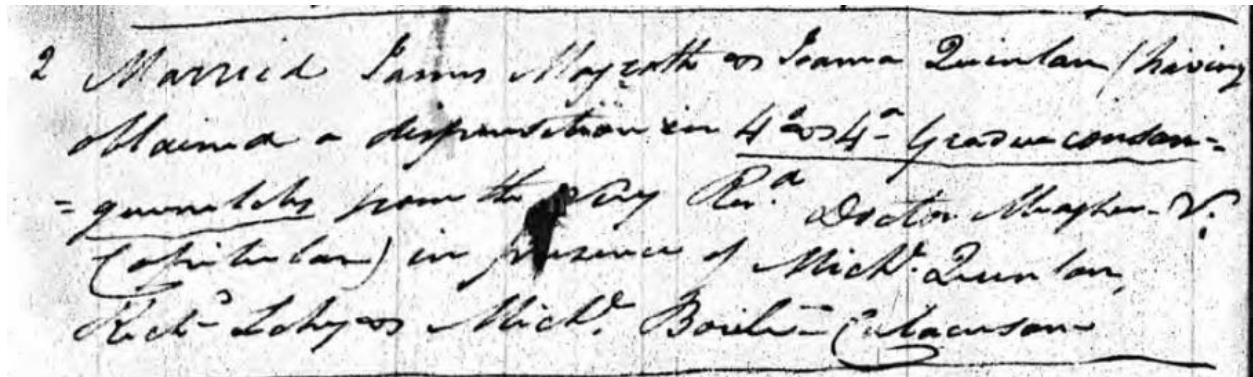 2 Married James Magrath & Joanna Quinlan (having
obtained a dispensation in 4º & 4º Gradu consan=
=guinitatis from the Very Revd Doctor Meagher V.
Capitular) in presence of Michl. Quinlan,
Richd & Michl.